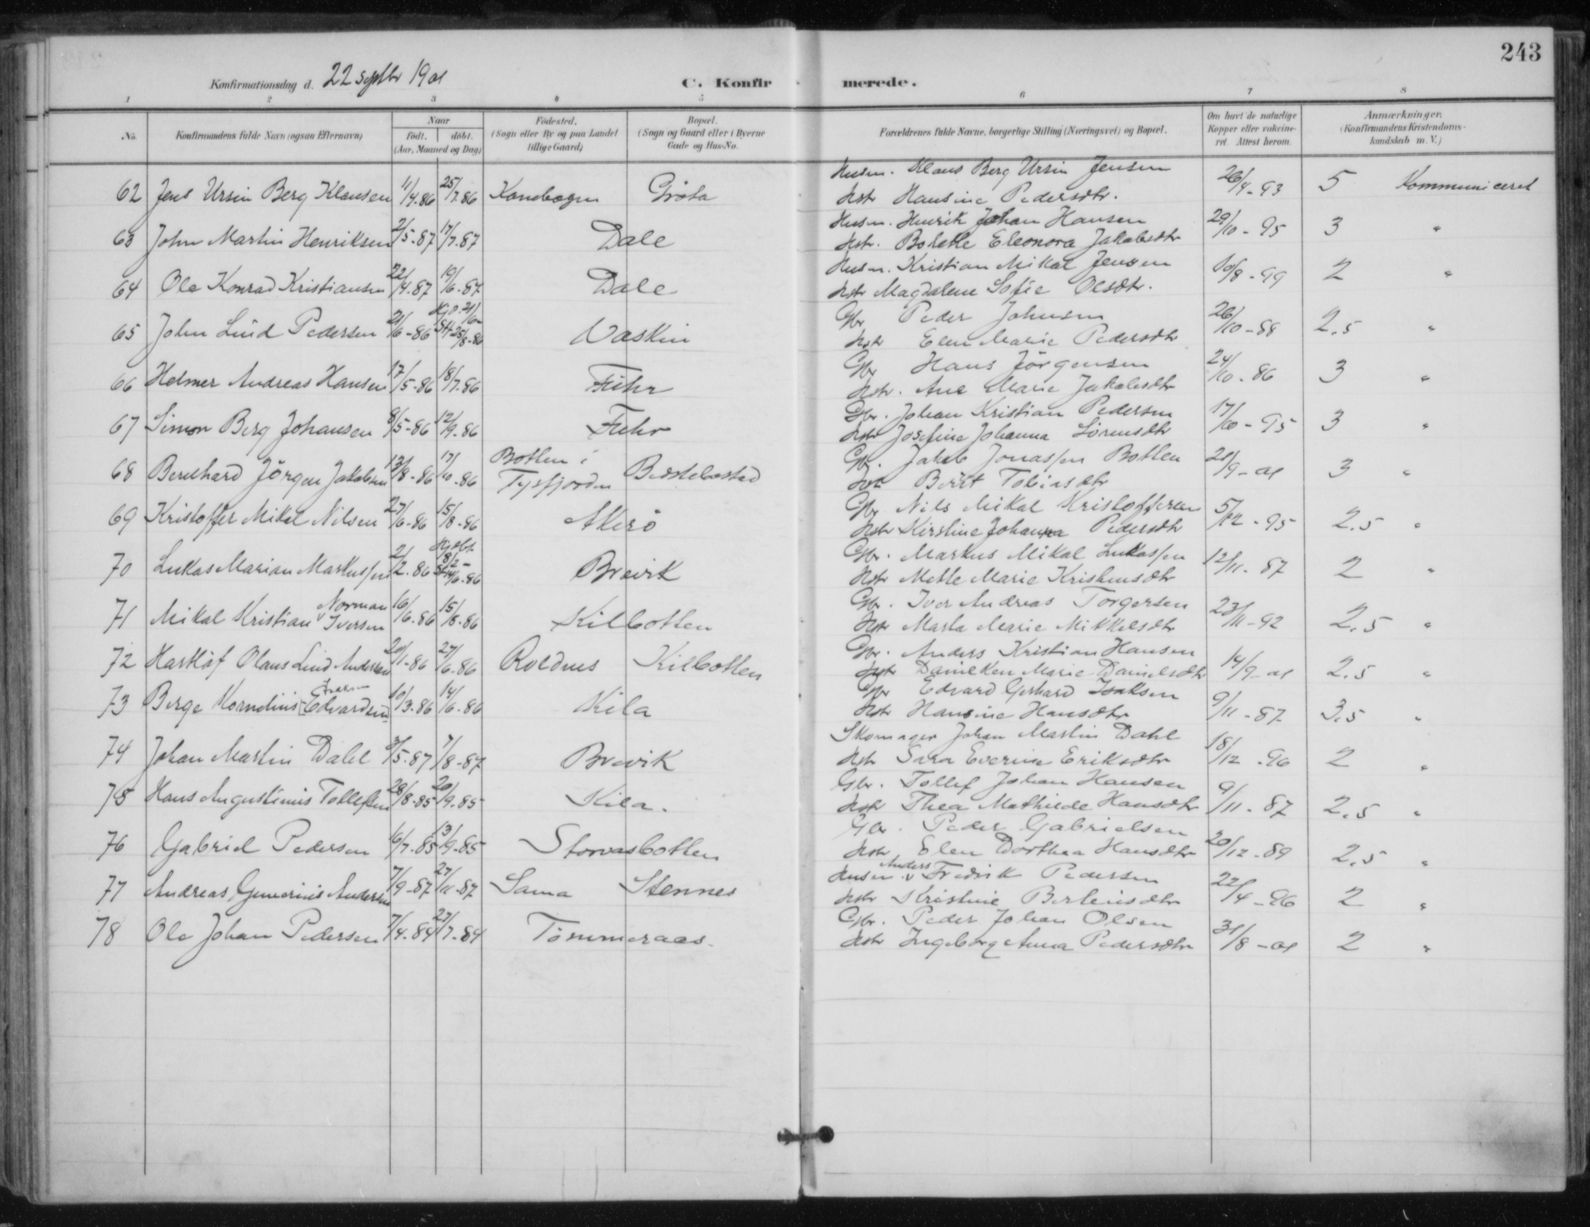 243
Konfirmationsdag d. 22 septbr 1901 C. Konfir merede.
1 2 3 4 5 6 7 8
No. Konfirmandens fulde Navn (ogsaa Efternavn) Naar Født. døbt. (Aar, Maaned og Dag) Fødested. (Sogn eller By og paa Landet tillige Gaard) Bopæl. (Sogn og Gaard eller i Byerne Gade og Hus-No. Forældrenes fulde Navne, borgerlige Stilling (Næringsvei) og Bopæl. Om havt de naturlige Kopper eller vaccineret. Attest herom. Anmærkninger. (Konfirmandens Kristendomskundskab m. V.)
Husm. Klaus Berg Ursin Jensen
62 Jens Ursin Berg Klausen 11/4.86 25/7.86 Kanebogen Grøta Hstr Hansine Pedersdtr. 26/4-93 5 Kommuniceret
Husm. Henrik Johan Hansen
63 John Martin Henriksen 2/5-87 17/7.87 Dale Hstr. Bolette Eleonora Jakobsdtr 29/10-95 3 "
Husm. Kristian Mikal Jensen
64 Ole Konrad Kristiansen 22/4.87 19/6-87 Dale Hstr Magdalene Sofie Olsdtr. 10/8-99 2 "
Gbr Peder Johnsen
65 John Lind Pedersen 2/6-86 Vaskin Hstr Elen Marie Pedersdtr 26/10-88 2.5 "
Gbr Hans Jørgensen
66 Helmer Andreas Hansen 17/5-86 18/7.86 Fuhr Hstr. Ane Marie Jakobsdtr 24/10-86 3 "
Gbr. Johan Kristian Pedersen
67 Simon Berg Johansen 8/5-86 12/9.86 Fuhr Hstr Josefine Johanna Sørensdtr 17/10-95 3 "
Botten i Gbr. Jakob Jonassen Botten
68 Bernhard Jørgen Jakobsen 13/8-86 17/10.86 Tysfjorden Beistebostad Berit Tobiasdtr 21/9-01 3 "
Gbr Nils Mikal Kristoffersen
69 Kristoffer Mikal Nilsen 27/6-86 15/8-86 Akerø Hstr Kirstine Johanna Pedersdtr 5/12-95 2.5 "
Gbr. Markus Mikal Lukassen
70 Lukas Marian Markussen 2/2.86 Brevik Hstr Mette Marie Kristensdtr 12/11-87 2 "
Norman Gbr. Iver Andreas Torgersen
71 Mikal Kristian Iversen 16/6.86 15/8.86 Kilbotten Hstr Marta Marie Mikkelsdtr 23/11-92 2.5 "
Gbr. Anders Kristian Hansen
72 Hartløf Olaus Lind Andersen 20/11-86 27/6.86 Roldnes Kilbotten Hstr Danielken Marie Danielsdtr 14/9-01 2.5 "
Gbr Edvard Gerhard Isaksen
73 Berge Kornelius Edvardsen 10/3.86 14/6-86 Kila Hstr Hansine Hansdtr 9/11-87 3.5 "
Skomager Johan Martin Dahl
74 Johan Martin Dahl 3/5-87 7/8-87 Brevik Hstr Sara Everine Eriksdtr 18/12-96 2 "
Gbr. Tollef Johan Hansen
75 Hans Augustinus Tollefsen 28/8.85 20/9.85 Kila. Hstr Thea Mathilde Hansdtr 9/11-87 2.5 "
Gbr. Peder Gabrielsen
76 Gabriel Pedersen 16/7.85 13/9.85 Storvasbotten Hstr Elen Dorthea Hansdtr 20/12-89 2.5 "
Husm. Anders Fredrik Pedersen
77 Andreas Andersen 7/9-87 27/11-87 Sama Stennes Hstr Kristine Berteinsdtr 22/4-96 2 "
Gbr. Peder Johan Olsen
78 Ole Johan Pedersen 7/4.84 27/7-84 Tømmeraas. Hstr Ingeborg Anna Pedersdtr 31/8-01 2 "